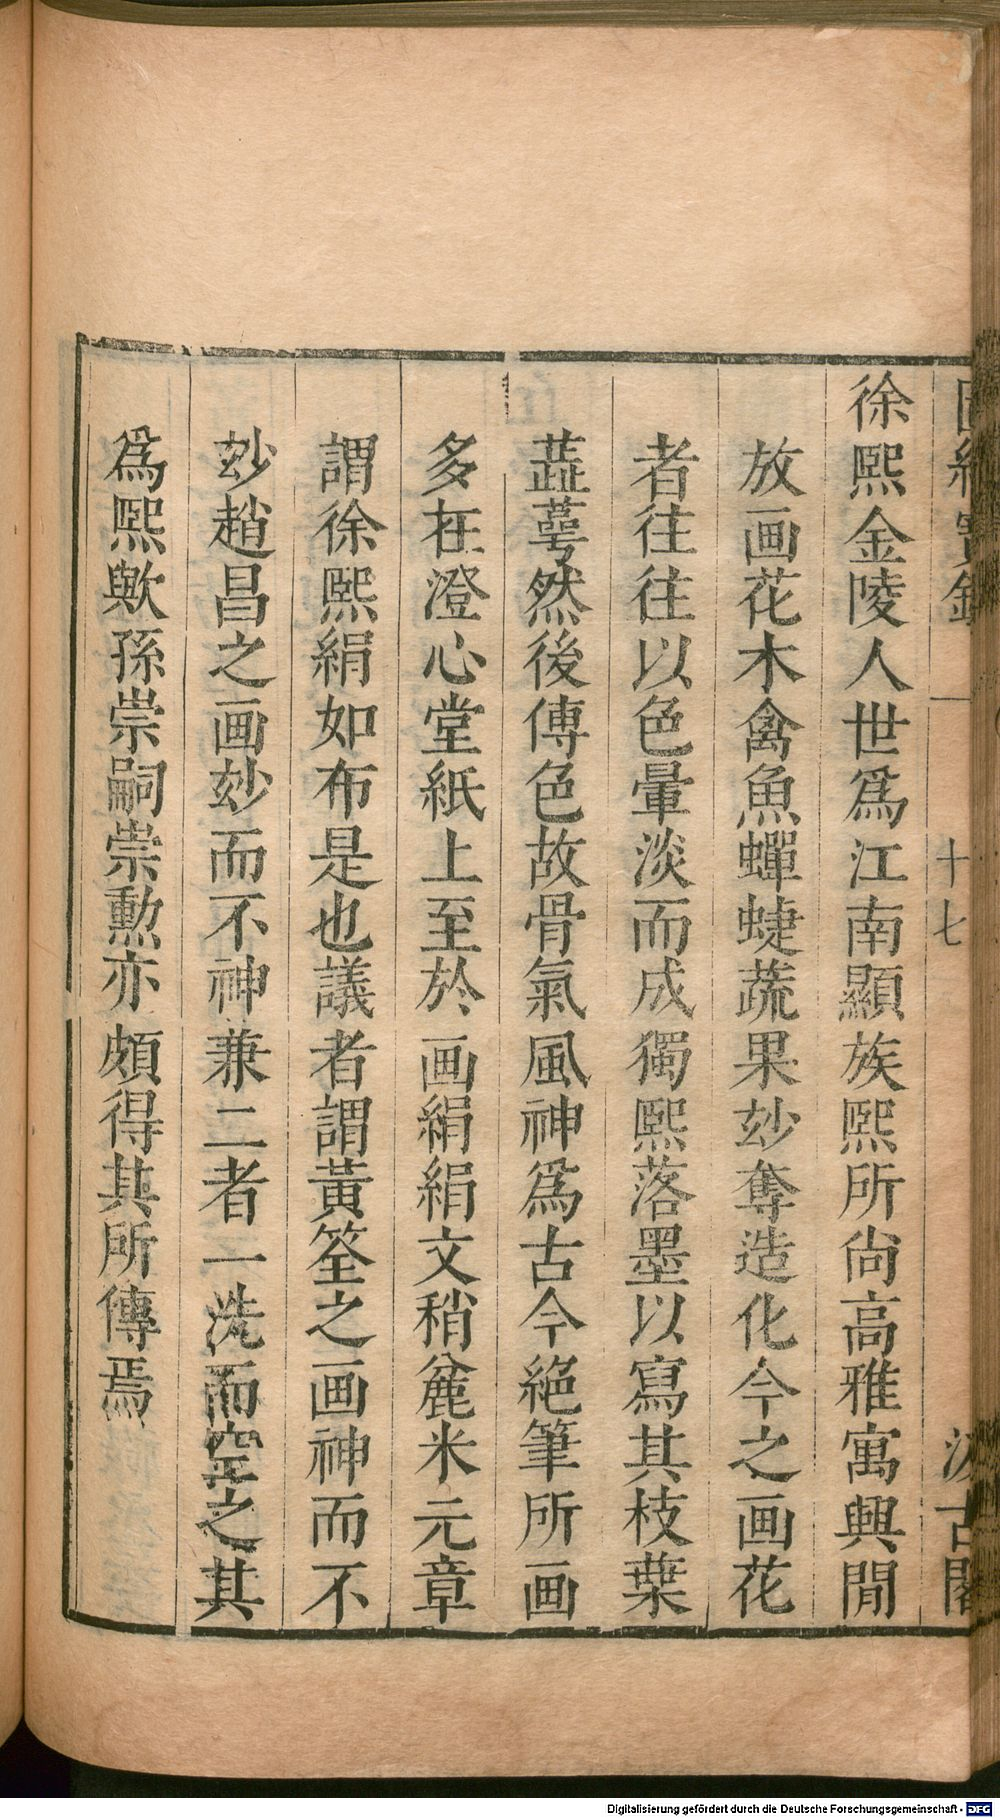 圖繪寶鑑 一 十七 汲古閣
徐熙金陵人世爲江南顯族熙所尚高雅寓興閒
放画花木禽魚蟬蜨蔬果玅奪造化今之画花
者往往以色暈淡而成獨熙落墨以寫其枝葉
蕋蕚然後傅色故骨氣風神爲古今絕筆所画
多在澄心堂紙上至於画絹絹文稍麄米元章
謂徐熙絹如布是也議者謂黃筌之画神而不
玅趙昌之画妙而不神兼二者一洗而空之其
爲熙歟孫崇嗣崇勲亦頗得其所傳焉
Digitalisierung gefördert durch die Deutsche Forschungsgemeinschaft - DFG